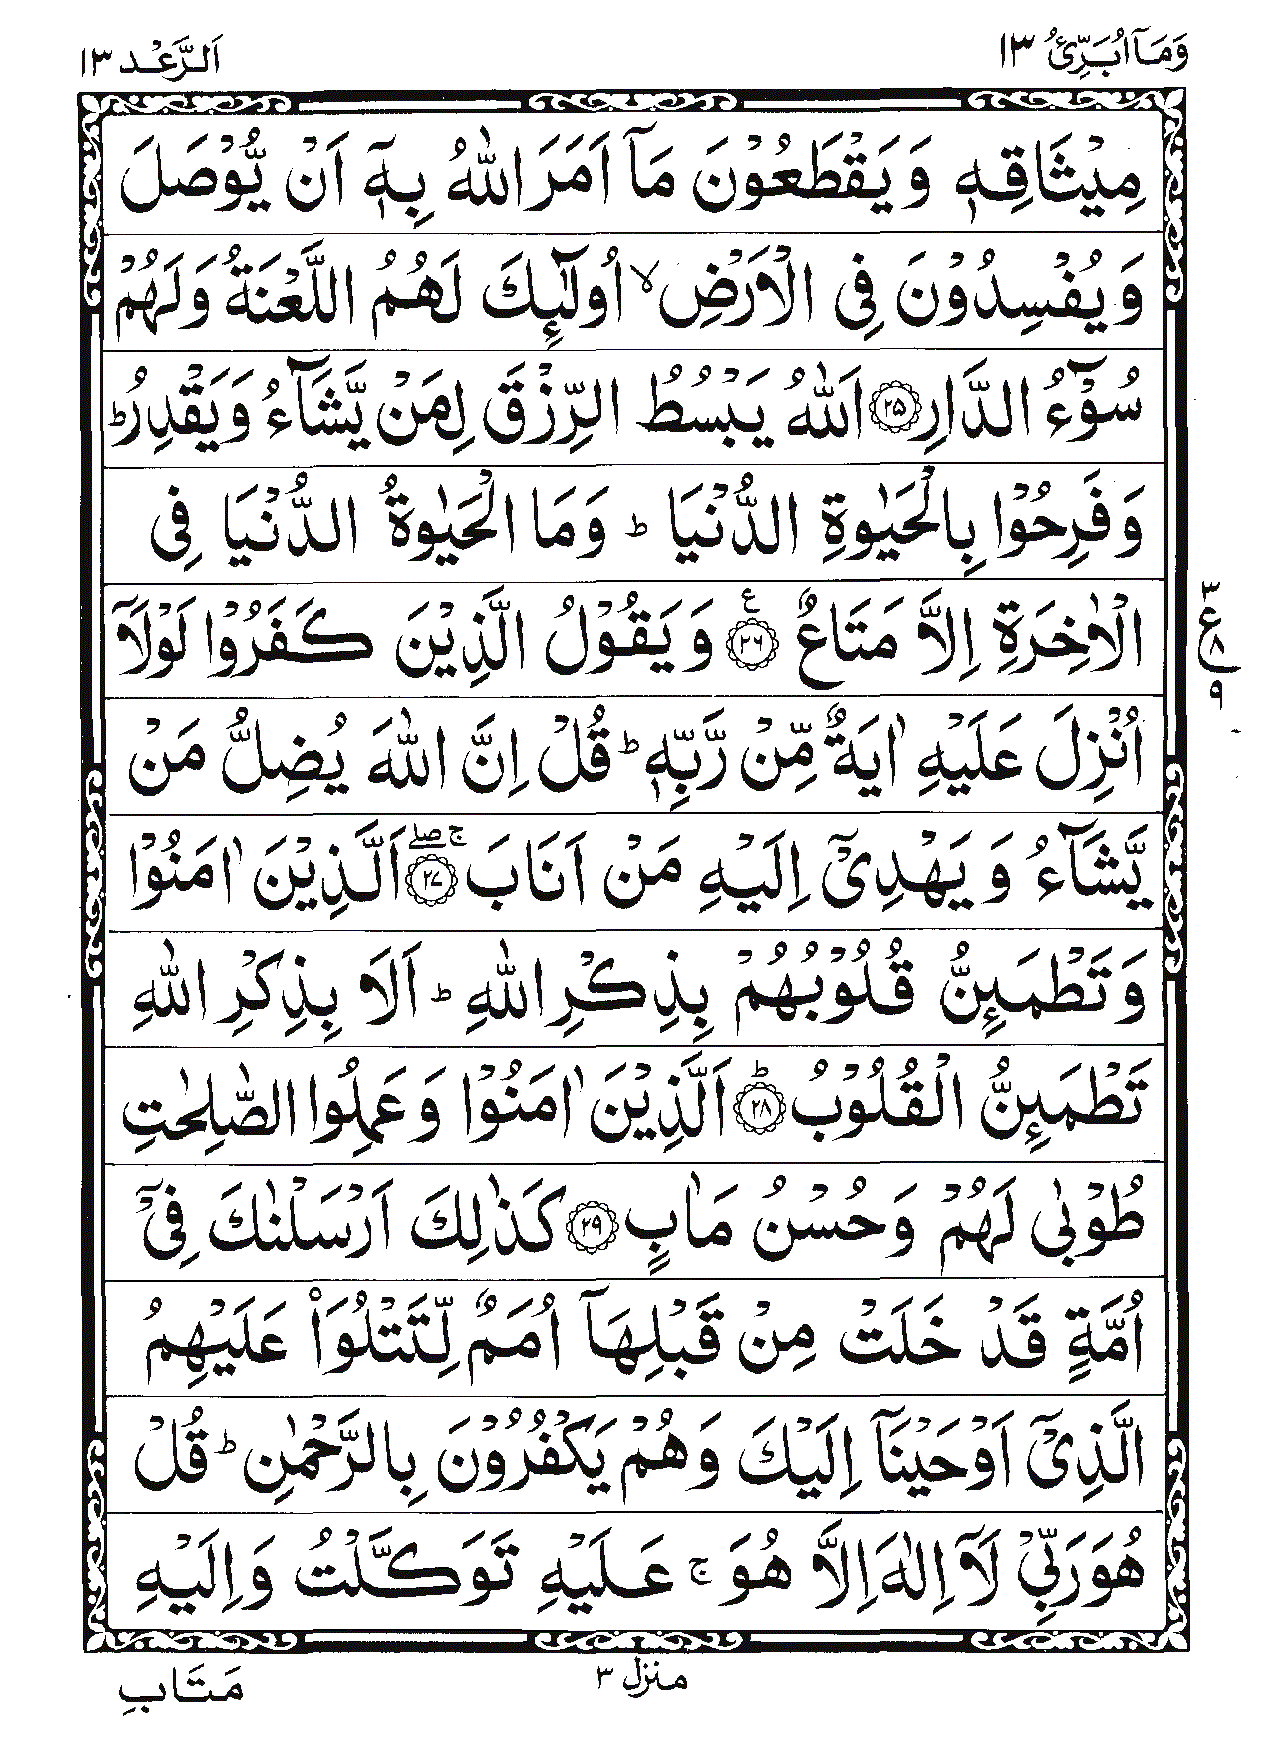 وَمَآ اُبَرِّئُ ١٣
اَلرَّعْد ١٣
مِیْثَاقِهٖ وَ یَقْطَعُوْنَ مَاۤ اَمَرَ اللّٰهُ بِهٖۤ اَنْ یُّوْصَلَ
وَ یُفْسِدُوْنَ فِی الْاَرْضِ ۙ اُولٰٓىِٕكَ لَهُمُ اللَّعْنَةُ وَلَهُمْ
سُوْٓءُ الدَّارِ ﴿۲۵﴾ اَللّٰهُ یَبْسُطُ الرِّزْقَ لِمَنْ یَّشَآءُ وَیَقْدِرُ ؕ
وَفَرِحُوْا بِالْحَیٰوةِ الدُّنْیَا ؕ وَمَا الْحَیٰوةُ الدُّنْیَا فِی
الْاٰخِرَةِ اِلَّا مَتَاعٌ ﴿۲۶﴾ ع وَ یَقُوْلُ الَّذِیْنَ كَفَرُوْا لَوْلَاۤ
٣
ع
٨
٩
اُنْزِلَ عَلَیْهِ اٰیَةٌ مِّنْ رَّبِّهٖ ؕ قُلْ اِنَّ اللّٰهَ یُضِلُّ مَنْ
یَّشَآءُ وَ یَهْدِیْۤ اِلَیْهِ مَنْ اَنَابَ ﴿۲۷﴾ ۚۖ اَلَّذِیْنَ اٰمَنُوْا
وَتَطْمَىِٕنُّ قُلُوْبُهُمْ بِذِكْرِ اللّٰهِ ؕ اَلَا بِذِكْرِ اللّٰهِ
تَطْمَىِٕنُّ الْقُلُوْبُ ﴿۲۸﴾ ؕ اَلَّذِیْنَ اٰمَنُوْا وَ عَمِلُوا الصّٰلِحٰتِ
طُوْبٰی لَهُمْ وَحُسْنُ مَاٰبٍ ﴿۲۹﴾ كَذٰلِكَ اَرْسَلْنٰكَ فِیْۤ
اُمَّةٍ قَدْ خَلَتْ مِنْ قَبْلِهَاۤ اُمَمٌ لِّتَتْلُوَا۟ عَلَیْهِمُ
الَّذِیْۤ اَوْحَیْنَاۤ اِلَیْكَ وَهُمْ یَكْفُرُوْنَ بِالرَّحْمٰنِ ؕ قُلْ
هُوَ رَبِّیْ لَاۤ اِلٰهَ اِلَّا هُوَ ۚ عَلَیْهِ تَوَكَّلْتُ وَاِلَیْهِ
منزل ٣
مَتَابِ